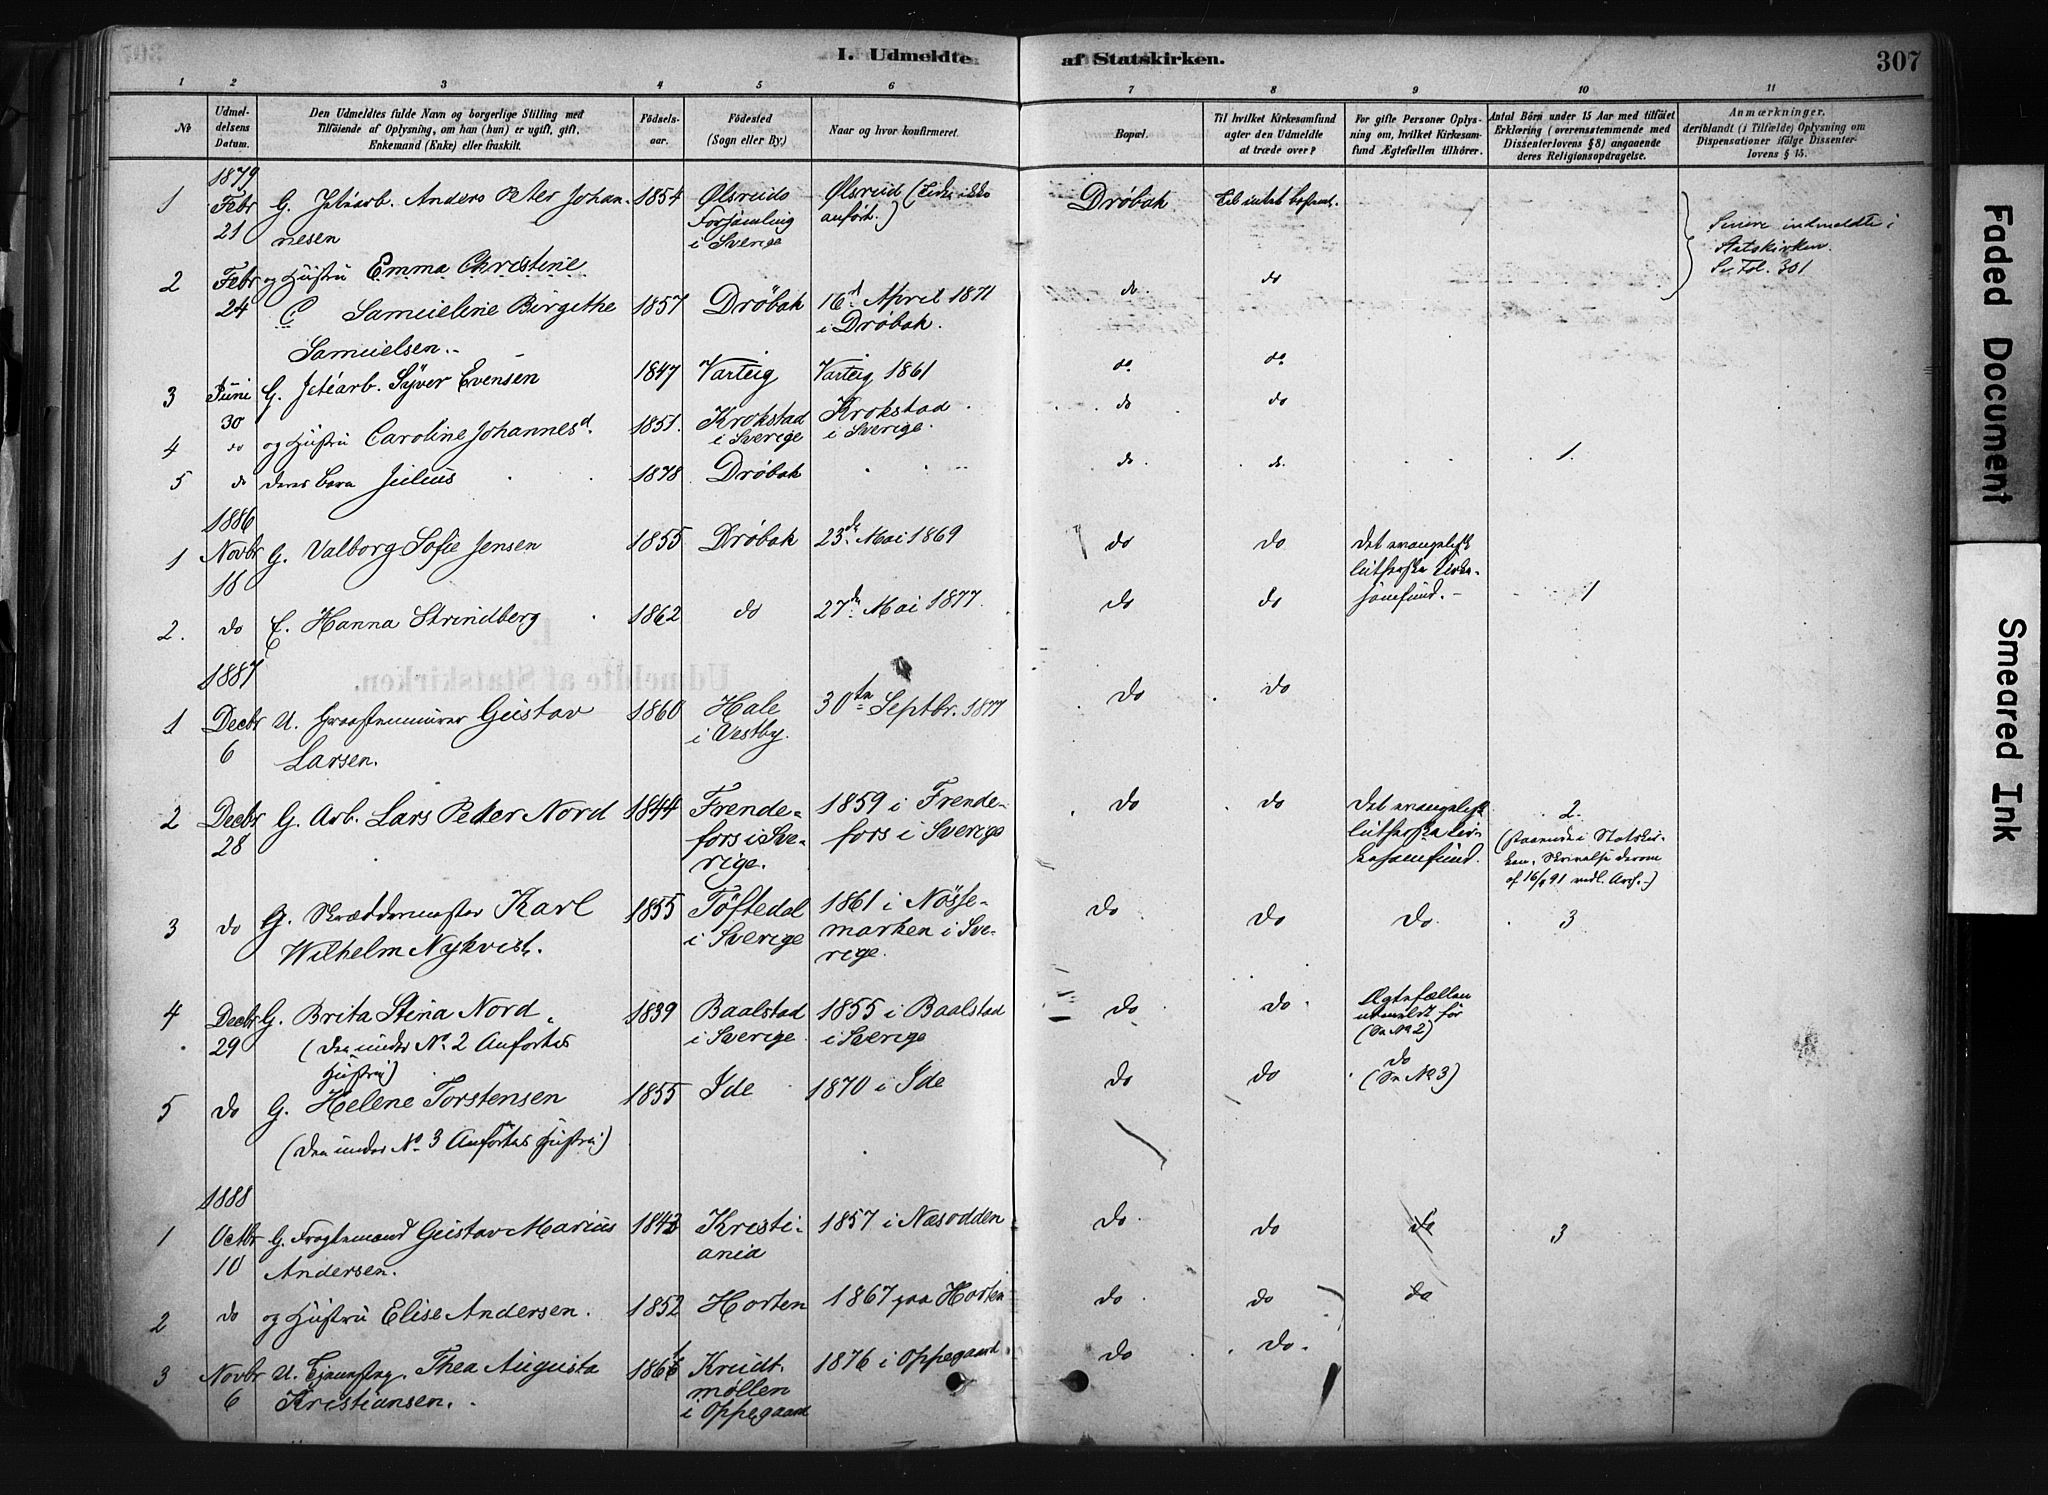 I. Udmeldte af Statskirken. 307
1 2 3 4 5 6 7 8 9 10 11
No Udmeldelsens Datum. Den Udmeldtes fulde Navn og borgerlige Stilling med Tilføiende af Oplysning, om han (hun) er ugift, gift, Enkemand (Enke) eller fraskilt. Fødselsaar. Fødested (Sogn eller By.) Naar og hvor konfirmeret. Bopæl. Til hvilket Kirkesamfund agter den Udmeldte at træde over? For gifte Personer Oplysning om, hvilket Kirkesamfund Ægtefællen tilhører. Antal Börn under 15 Aar med tilføiet Erklæring (overensstemmende med Dissenterlovens § 8) angaaende deres Religionsopdragelse. Anmærkninger, deriblandt (i Tilfælde) Oplysning om Dispensationer ifølge Dissenterlovens § 15.
1879
1 Febr 21 G. Anders Peter Johannesen 1854 Ølsreids Forsamling i Sverige Ølsreid (Tiden ikke anført.) Drøbak Til intet bestemt. Senere indmeldte i Statskirken. Se Fol. 301
2 Febr 24 og Hustru Emma Christine Samueline Birgithe Samuelsen. 1857 Drøbak 16d April 1871 i Drøbak. do do
3 Juni 30 G. Syver Evensen 1847 Varteig Varteig 1861 do do
4 do og Hustru Caroline Johannesd. 1851. Krokstad i Sverige Krokstad i Sverige. do do
5 do deres Barn Julius 1878 Drøbak do do 1.
1886
1 Novbr 18 G. Valborg Sofie Jensen 1855 Drøbak 23de Mai 1869 do do Det evangelisk lutherske Kirkesamfund. 1
2. do E. Hanna Strindberg 1862 do 27de Mai 1877. do do
1887
1 Decbr 6 U. Graastensmurer Gustav Larsen. 1860 Hale i Vestby. 30te Septbr. 1877 do do
2 Decbr 28 G. Arb. Lars Peter Nord 1844 Frendefors i Sverige. 1859 i Frendefors i Sverige do do Det evangelisk lutherske Kirkesamfund. 2.
(staaende i Statskirken. Skrivelse derom af 16/9 91 vedl. Arch.)
3 do G. Skræddermester Karl Wilhelm Nykvist. 1855 Töftedal i Sverige 1861 i Nössemarken i Sverige. do do do. 3
4 Decbr 29 G. Brita Stina Nord (den under No. 2 Anførtes Hustru) 1839 Baalstad i Sverige 1855 i Baalstad i Sverige do do. Ægtefællen udmeldt før (Se No 2)
5 do G. Helene Torstensen (den under No. 3 Anførtes Hustru) 1855 Ide 1870 i Ide do do do (Se No 3)
1888
1 Octbr 10 G. Fragtemand Gustav Marius Andersen. 1842 Kristiania 1857 i Næsodden do. do do 3
2 do og Hustru Elise Andersen. 1852 Horten 1867 paa Horten do do do
3 Novbr 6 U. Thea Augusta Kristiansen. 1861 Krudtmøllen i Oppegaard 1876 i Oppegaard do do.
Faded Document
Smeared Ink